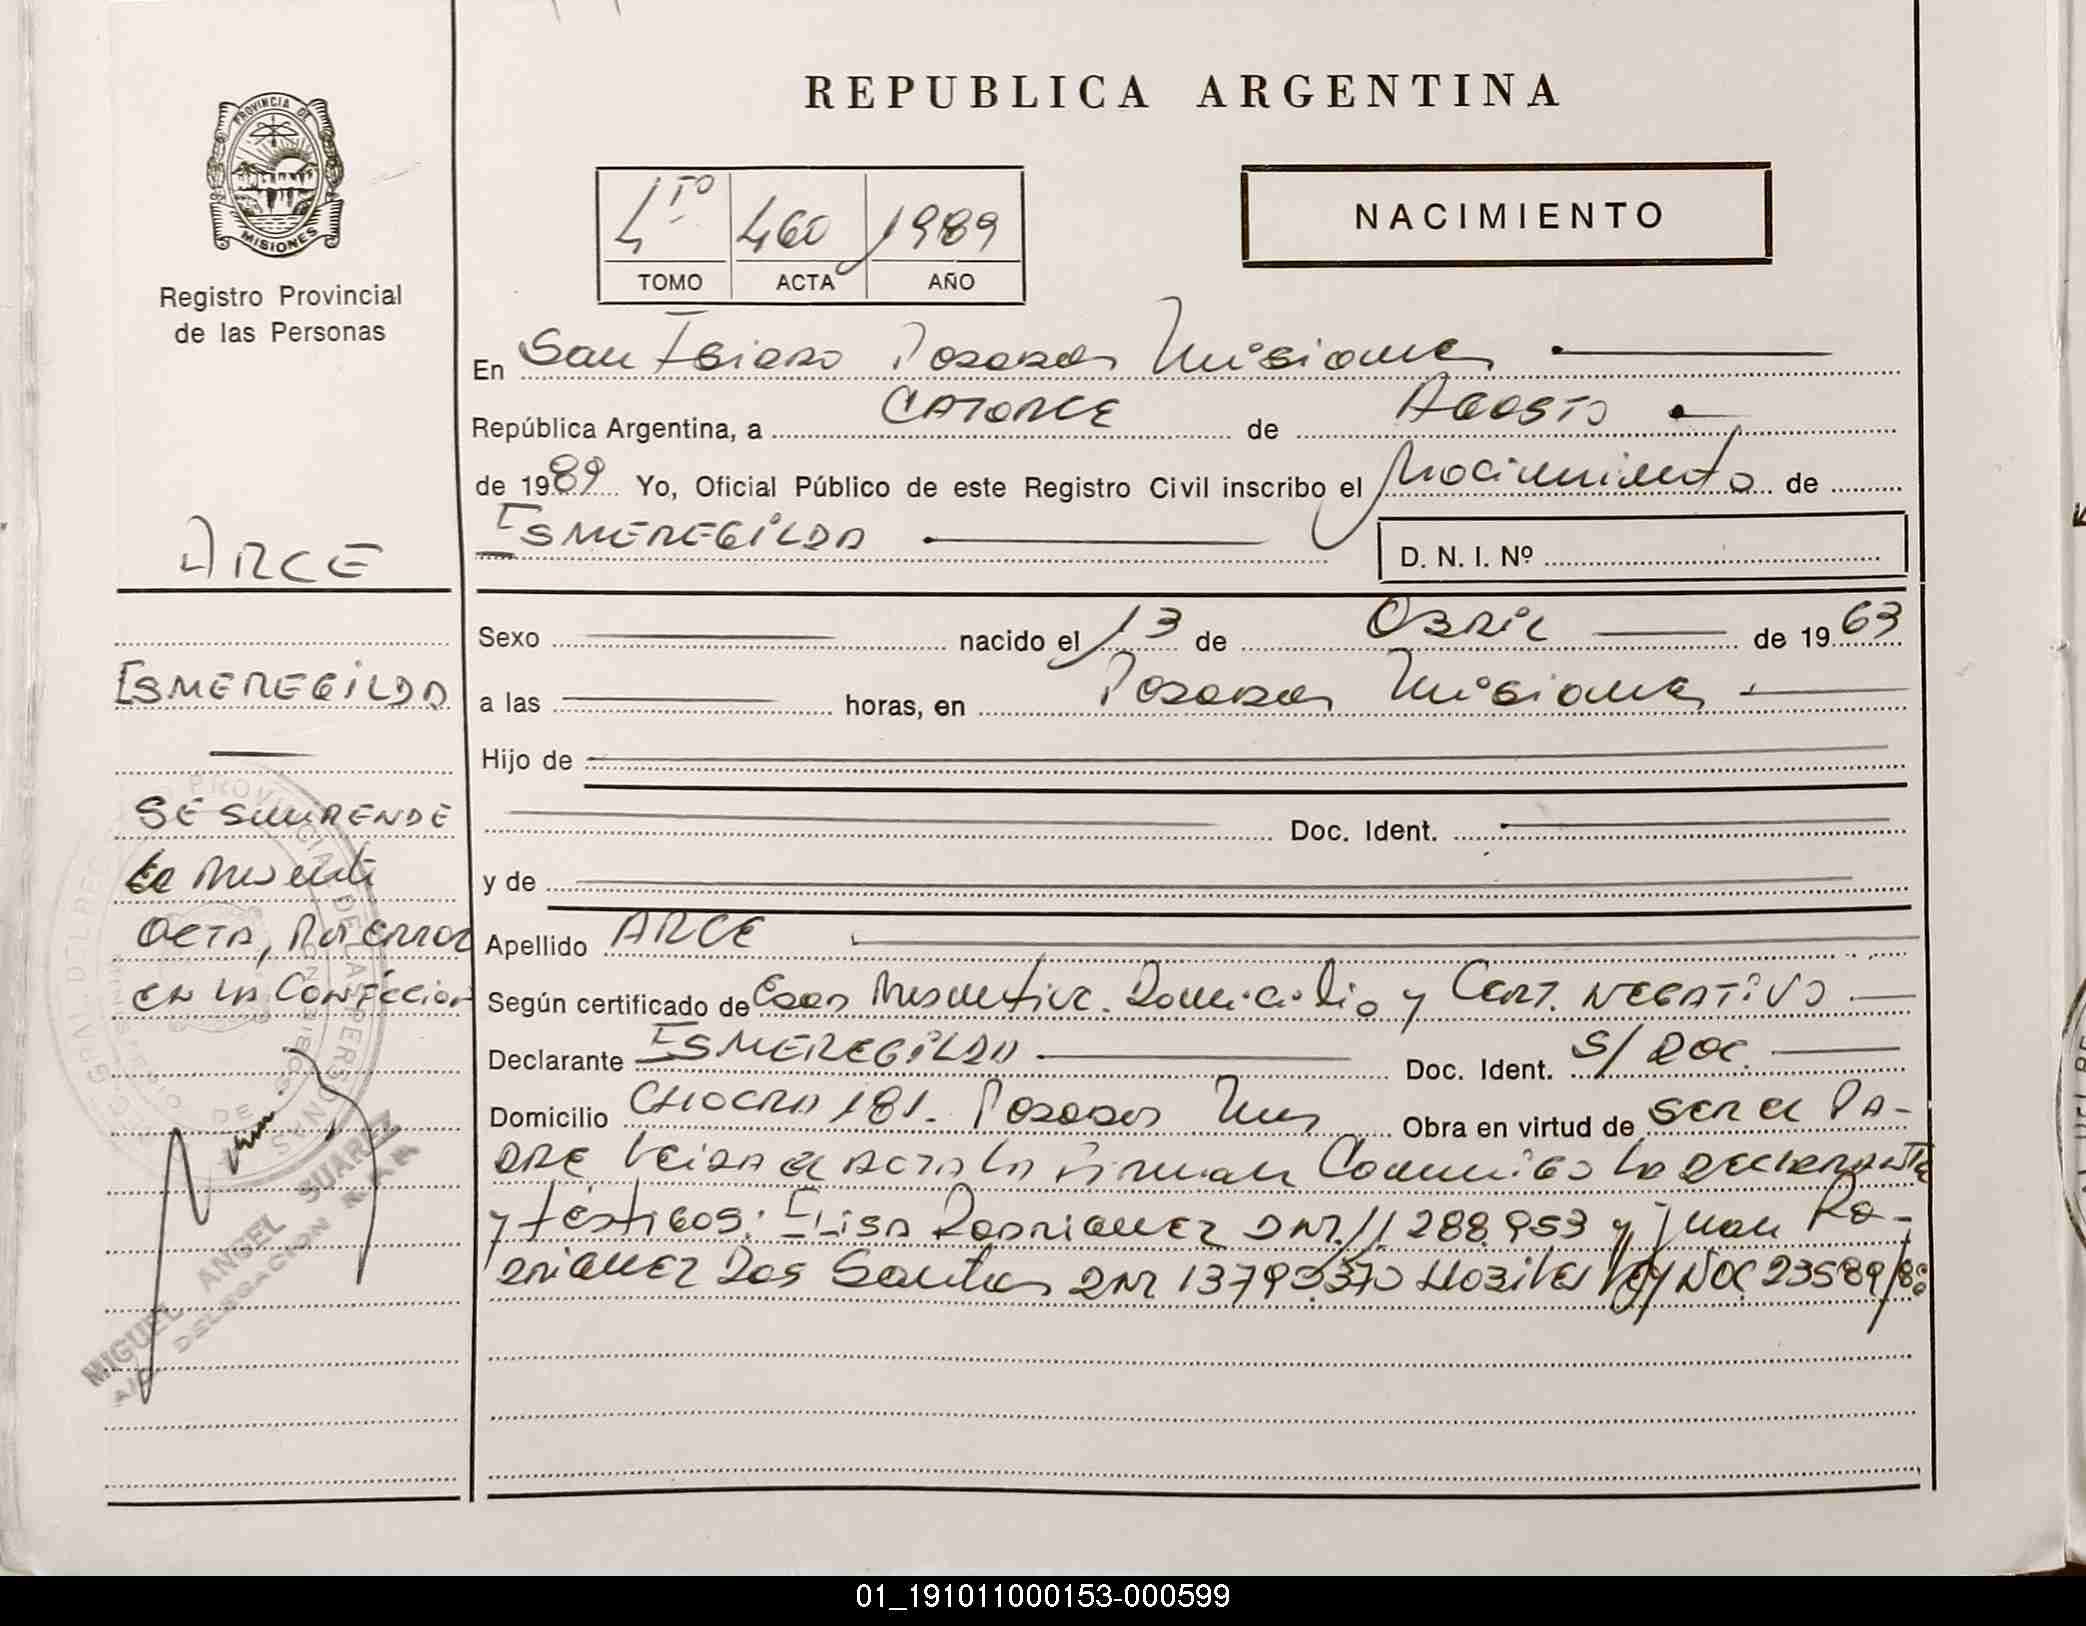 REPUBLICA ARGENTINA
PROVINCIA DE
MISIONES
Registro Provincial
de las Personas
4to 460 1989
TOMO ACTA AÑO
NACIMIENTO
En San Isidro Posadas Misiones
República Argentina, a CATORCE de AGOSTO
de 1989 Yo, Oficial Público de este Registro Civil inscribo el Nacimiento de
ESMEREGILDA
D. N. I. Nº
ARCE
ESMEREGILDA
SE SUSPENDE
la presente
ACTA, POR ERROR
EN LA CONFECCION
MIGUEL ANGEL SUAREZ
A/C DELEGACION
Sexo nacido el 13 de ABRIL de 1963
a las horas, en Posadas Misiones
Hijo de
Doc. Ident.
y de
Apellido ARCE
Según certificado de Edad Presuntiva. Domicilio y CERT. NEGATIVO
Declarante ESMEREGILDA Doc. Ident. S/ DOC.
Domicilio CHACRA 181. Posadas Mnes Obra en virtud de SER el PA-
DRE Leida el ACTA LA Firman Conmigo La DECLARANTE
y testigos: ELISA RODRIGUEZ DNI. 11 288.953 y Juan Ro-
DRIGUEZ DOS Santos DNI 13790370 Ley NAC 23589/88
01_191011000153-000599